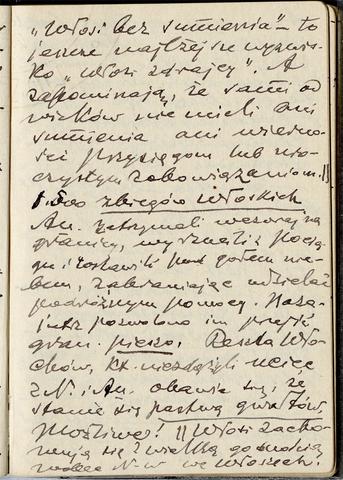 „Włosi bez sumienia" – to
jeszcze najlżejsze wyzwis-
ko „Włosi zdrajcy". A
zapominają, że sami od
wieków nie mieli ani
sumienia ani wierno-
ści przysięgom lub uro-
czystym zobowiązaniom. ||
zbiegów włoskich
An. zatrzymali wczoraj na
granicy, wyrzucili z pocią-
gu i zostawili pod gołem nie-
bem, zabraniając udzielać
podróżnym pomocy. Naza-
jutrz pozwolono im przejść
gran. pieszo. Reszta Wło-
chów, kt. nie zdążyli uciec
z N. i An. obawia się, że
stanie się pastwą gwałtów.
Możliwe! || Włosi zacho-
wują się z wielką godnością
wobec N-w we Włoszech.